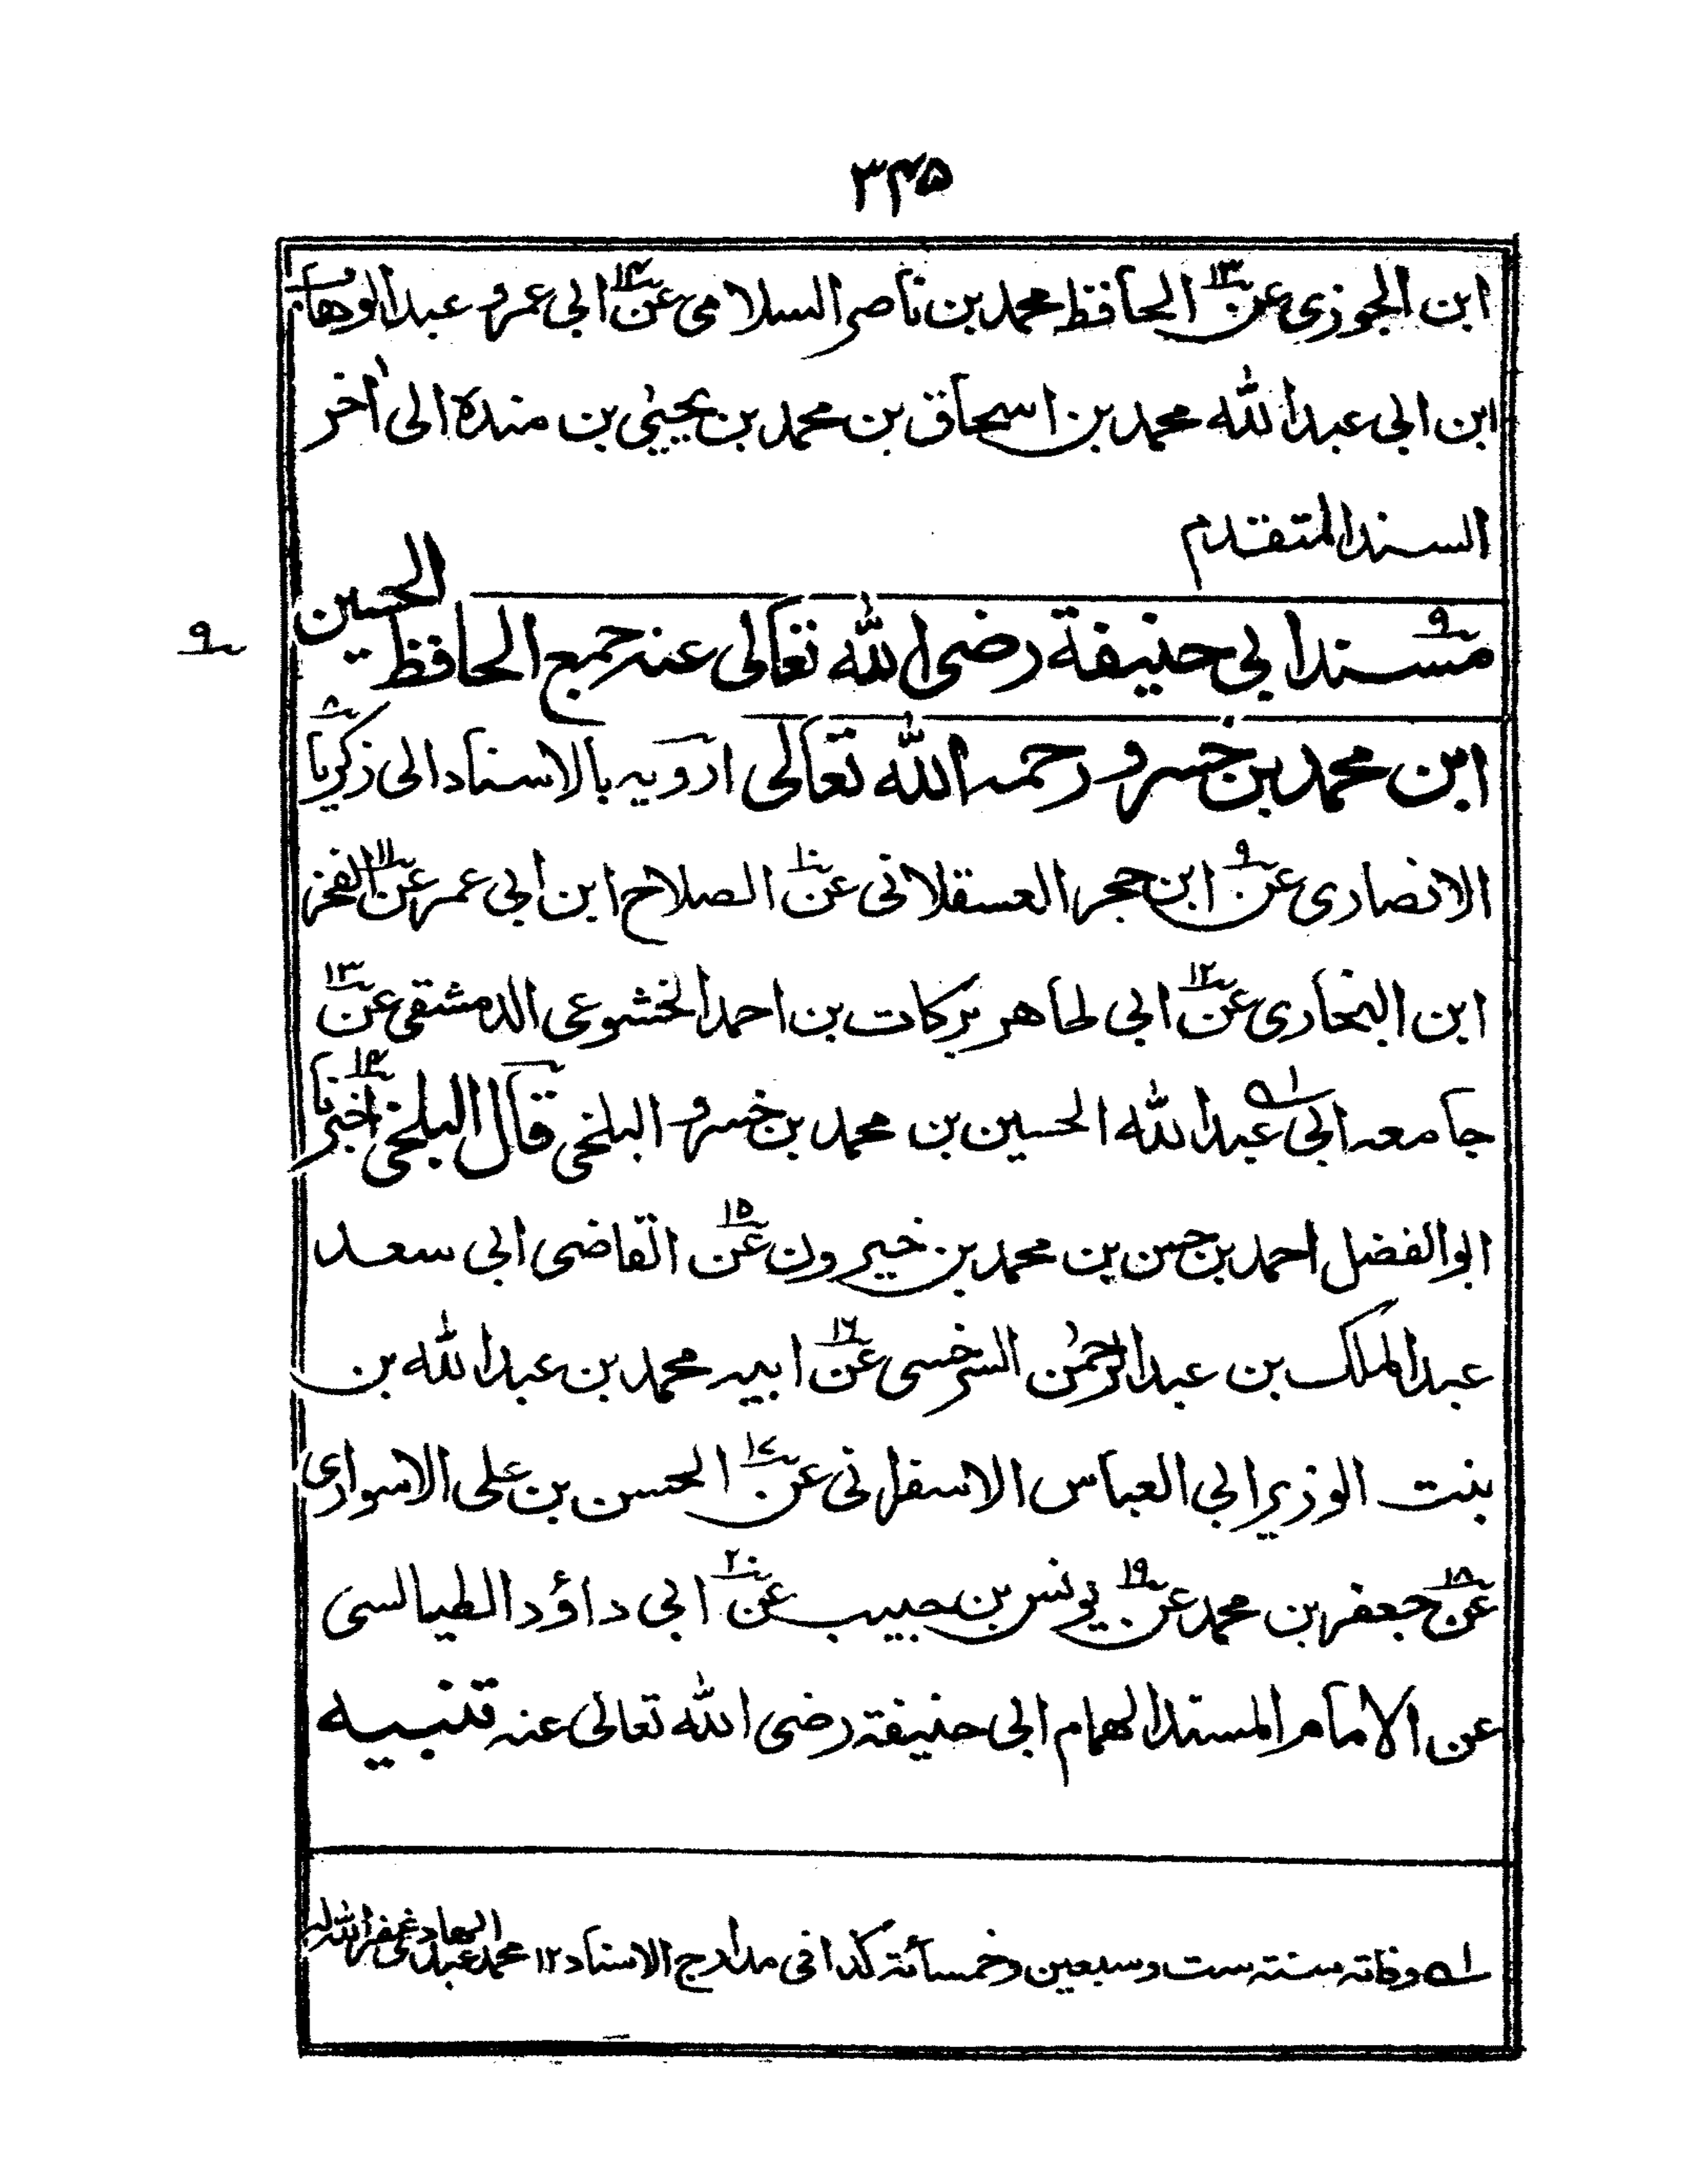 ۳۴۵
ابن الجوزی عن۱۳ الحافظ محمد بن ناصر السلامی عن۱۴ ابی عمرو عبدالوهاب
ابن ابی عبدالله محمد بن اسحاق بن محمد بن یحیٰی بن منده الی اٰخر
السند المتقدم
۹ مسند ابی حنیفة رضی الله تعالی عنه جمع الحافظ الحسین
۹
ابن محمد بن خسرو رحمه الله تعالی ارویه بالاسناد الی زکریا۸
الانصاری عن۹ ابن حجر العسقلانی عن۱۰ الصلاح ابن ابی عمر عن۱۱ الفخر
ابن البخاری عن۱۲ ابی طاهر برکات بن احمد الخشوعی الدمشقی عن۱۳
جامعه ابی۱ عبدالله الحسین بن محمد بن خسرو البلخی قال البلخی اخبرنا۱۴
ابوالفضل احمد بن حسن بن محمد بن خیرون عن۱۵ القاضی ابی سعد
عبدالملک بن عبدالرحمٰن السرخسی عن۱۶ ابیه محمد بن عبدالله بن
بنت الوزیر ابی العباس الاسفرانی عن۱۷ الحسن بن علی الاسواری
عن۱۸ جعفر بن محمد عن۱۹ یونس بن حبیب عن۲۰ ابی داؤد الطیالسی
عن الامام المسند الهمام ابی حنیفة رضی الله تعالی عنه تنبیه
۱ وفاته سنته ست وسبعین وخمسمائة کذا فی مدارج الاسناد ۱۲ محمد عبدالهادی غفرالله له